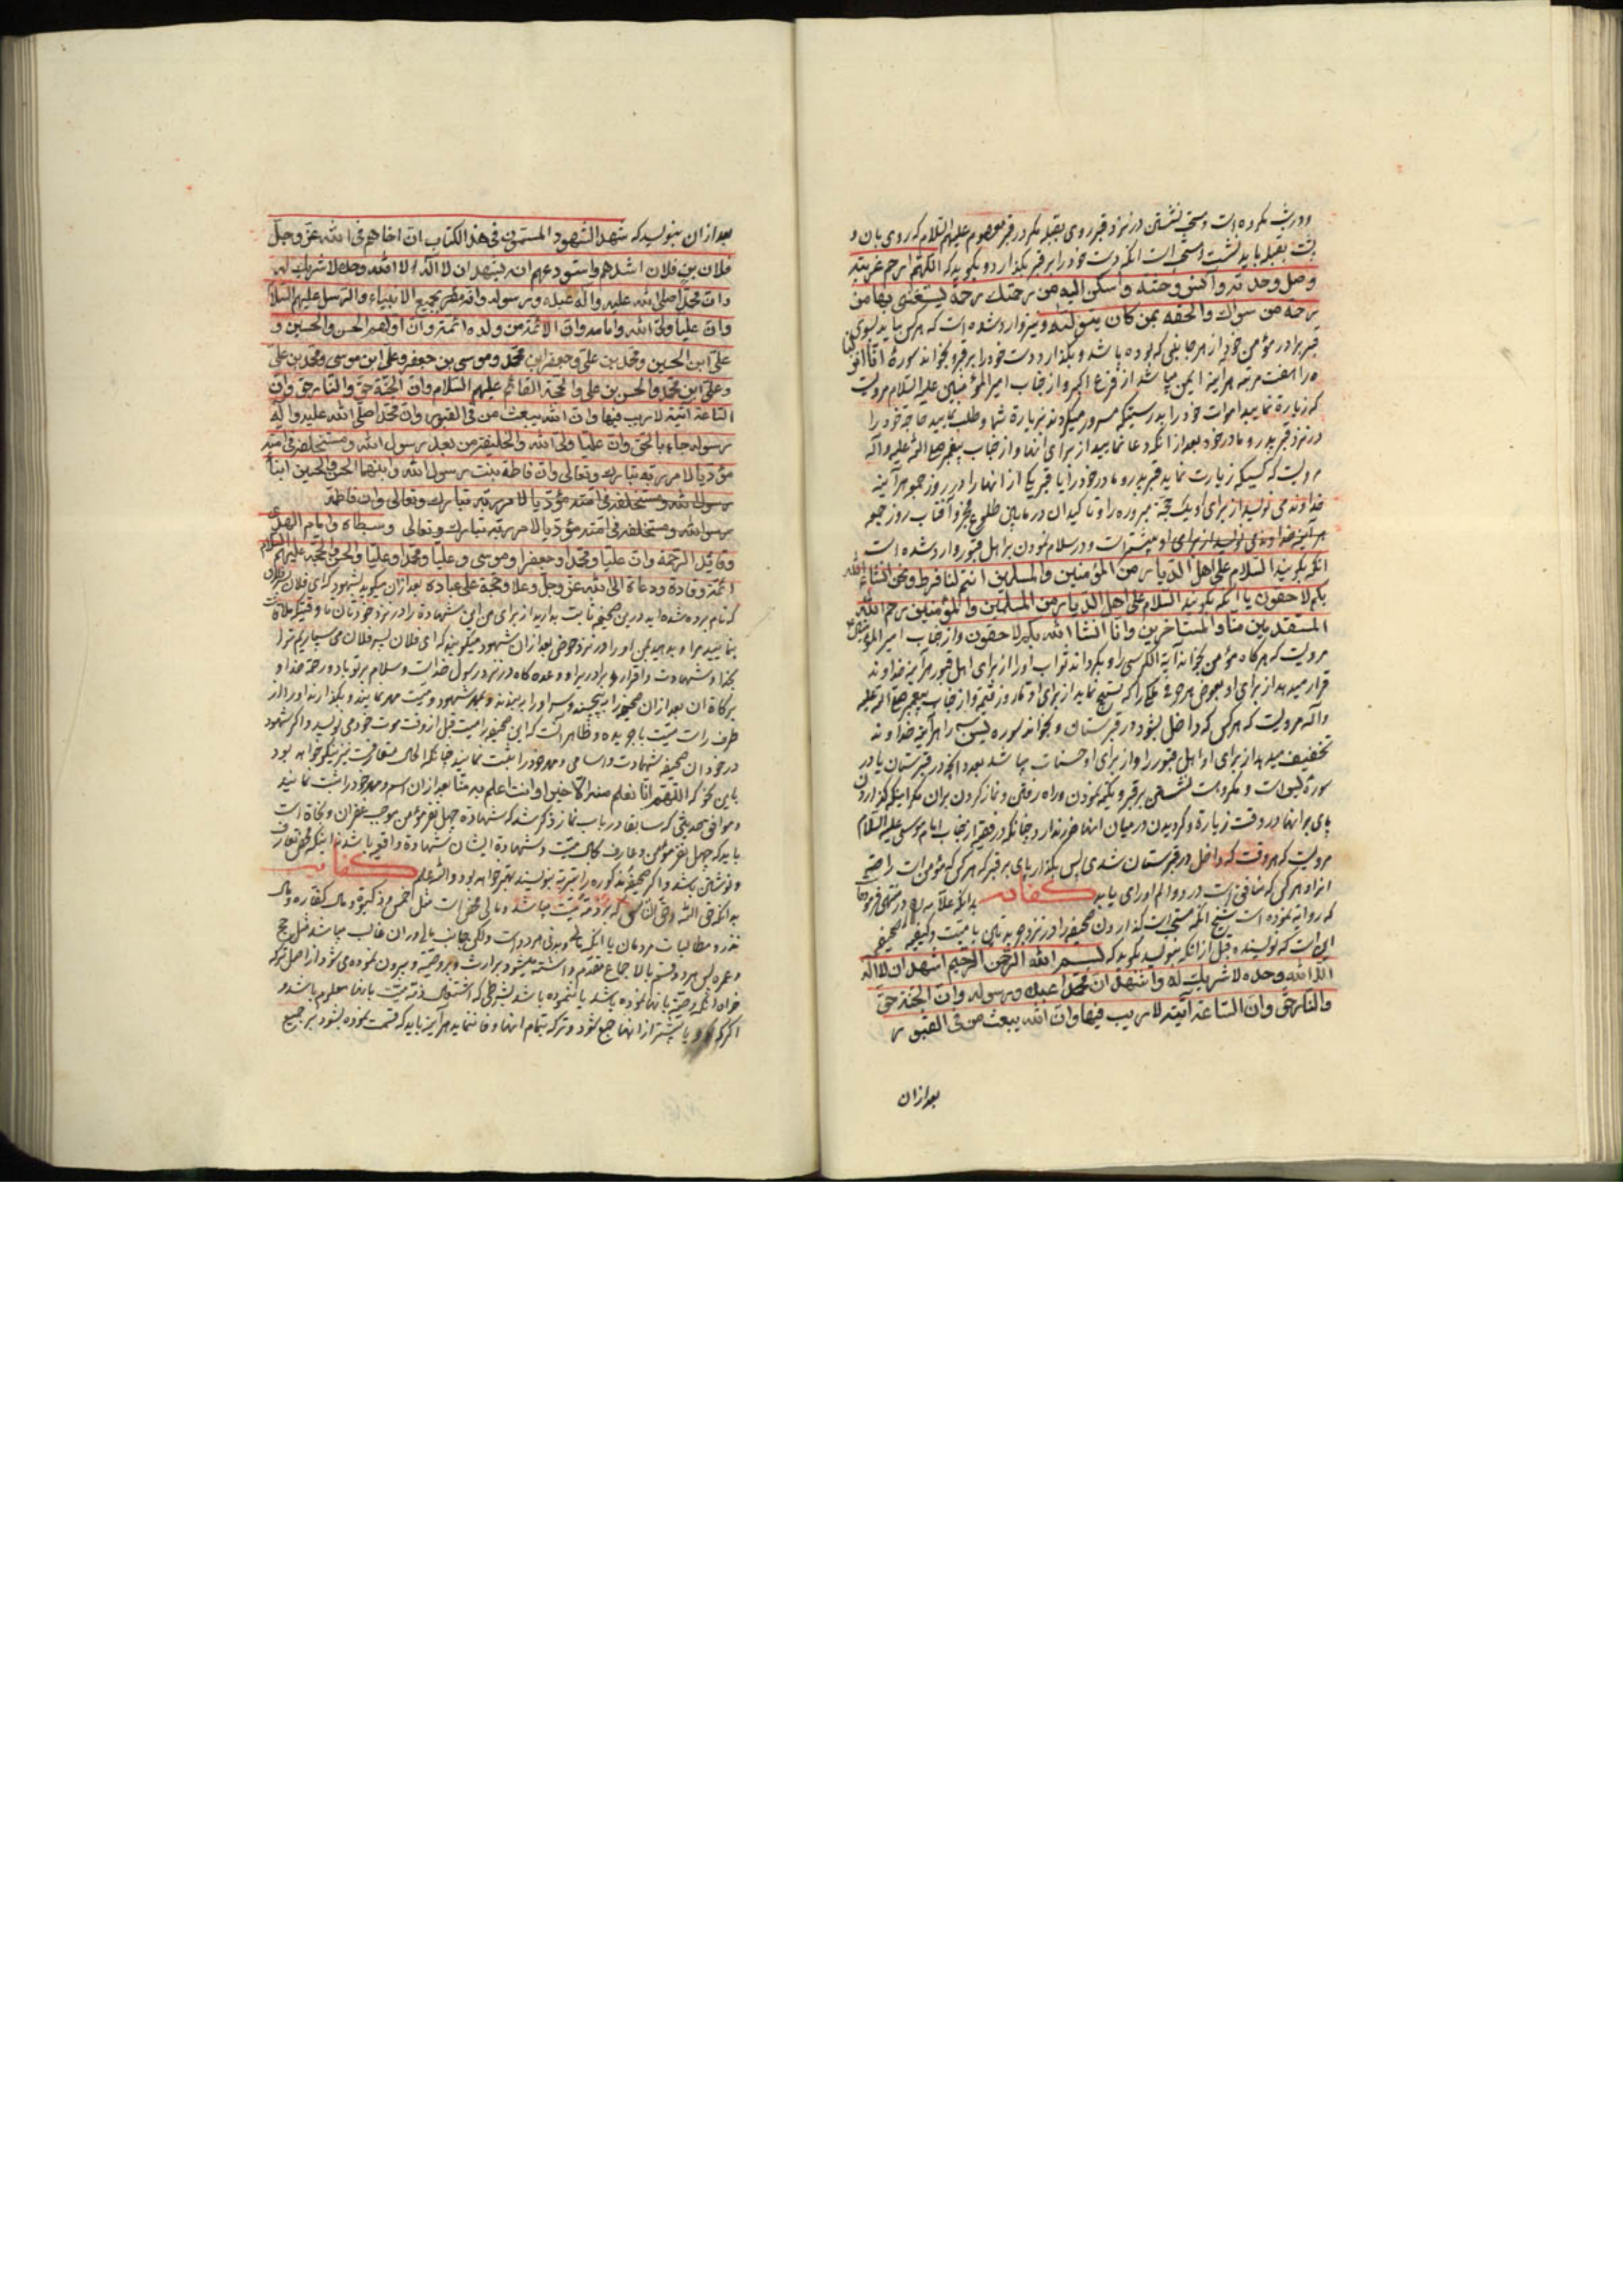 ودرشب مکروه است ومستحب نشستن در نزد قبر روی بقبله مکر در قبر معصوم علیهم السلام که روی بان و
پشت بقبله باید نشست ومستحب است انکه دست خود را بر قبر بکذارد و بکوید که اللهم ارحم غربته
وصل وحدته وآنس وحشته واسکن الیه من رحمتک رحمة یستغنی بها من
رحمة من سواک والحقه بمن کان یتولاه ونیز وارد شده است که هرکس بیاید بسوی
قبر برادر مؤمن خود از هر جانبی که بوده باشد و بکذارد دست خود را بر قبر و بخواند سورهٔ انا انزلنا
ه را هفت مرتبه هراینه ایمن میباشد از فزع اکبر و از جناب امیر المؤمنین علیه السلام مرویست
که زیارة نمایید اموات خود را بدرستیکه مسرور میکردند بزیارة شما وطلب نمایید حاجة خود را
در نزد قبر پدر و مادر خود بعد از انکه دعا نمایید از برای انها و از جناب پیغمبر صلی الله علیه وآله
مرویست که کسیکه زیارت نماید قبر پدر و مادر خود را یا قبر یکی از انها را در روز جمعه هرآینه
خداوند می نویسد از برای او یک حجة مبروره را وتاکید ان در مابین طلوع فجر و آفتاب روز جمعه
هرآینه خداوند می نویسد از برای او بیشتر است ودر سلام نمودن بر اهل قبور وارد شده است
انکه بکوید السلام علی اهل الدیار من المؤمنین والمسلمین انتم لنا فرط ونحن انشاء الله
بکم لاحقون یا انکه بکوید السلام علی اهل الدیار من المسلمین والمؤمنین رحم الله
المستقدمین منا والمستاخرین وانا انشا الله بکم لاحقون واز جناب امیر المؤمنین
مرویست که هرکاه مؤمن بخواند آیة الکرسی را و بکرداند ثواب او را از برای اهل قبور هرآینه خداوند
قرار میدهد از برای او بعوض هر حرفی ملکی را که تسبیح نماید از برای او تا روز قیمة واز جناب پیغمبر صلی الله علیه
وآله مرویست که هرکس که داخل بشود در قبرستان و بخواند سوره یس را هرآینه خداوند
تخفیف میدهد از برای او اهل قبور را و از برای او حسنات میباشد بعدد انچه در قبرستان یا در
سوره یس است ومکروه است نشستن بر قبر وتکیه نمودن وراه رفتن ونماز کردن بران مکر اینکه کذاردن
پای بر انها در وقت زیارة وکردیدن در میان انها ضرر ندارد چنانکه در فقیه از جناب امام موسی علیه السلام
مرویست که هر وقت که داخل در قبرستان شدی پس بکذار پای بر قبر که هرکس که مؤمن است راضی
از او هرکس که منافق است در دو الم او را می یابد کفایه بدانکه علامه ره در منتهی فرموده
که روایة نموده است شیخ انکه مستحب است کذاردن صحیفه را در نزد جریدتین با میت وکیفیة صحیفه
این است که نویسنده قبل از انکه بنویسد بکوید که بسم الله الرحمن الرحیم اشهد ان لا اله
الا الله وحده لا شریک له واشهد ان محمدا عبده ورسوله وان الجنة حق
والنار حق وان الساعة آتیة لا ریب فیها وان الله یبعث من فی القبور
بعد ازان
بعد ازان بنویسد که شهد الشهود المسمون فی هذا الکتاب ان اخاهم فی الله عز وجل
فلان بن فلان اشهدهم واستودعهم انه یشهد ان لا اله الا الله وحده لا شریک له
وان محمدا صلی الله علیه وآله عبده ورسوله وانه مقر بجمیع الانبیاء والرسل علیهم السلام
وان علیا ولی الله وامامه وان الائمة من ولده ائمته وان اولهم الحسن والحسین و
علی ابن الحسین ومحمد بن علی وجعفر ابن محمد وموسی بن جعفر وعلی ابن موسی ومحمد بن علی
وعلی ابن محمد والحسن بن علی والحجة القائم علیهم السلام وان الجنة حق والنار حق وان
الساعة آتیة لا ریب فیها وان الله یبعث من فی القبور وان محمدا صلی الله علیه وآله
رسوله جاء بالحق وان علیا ولی الله والخلیفة من بعد رسول الله ومستخلفه فی امته
مؤدیا لامر ربه تبارک وتعالی وان فاطمة بنت رسول الله وابنیها الحسن والحسین ابنا
رسول الله ومستخلفه فی امته مؤدیا لامر ربه تبارک وتعالی وان فاطمة
رسول الله ومستخلفه فی امته مؤدیا لامر ربه تبارک وتعالی وسبطاه واماما الهدی
وقائدا الرحمة وان علیا ومحمدا وجعفرا وموسی وعلیا ومحمدا وعلیا والحسن والحجة علیهم السلام
ائمة وقادة ودعاة الی الله عز وجل وعلا وحجة علی عباده بعد ازان میکوید بشهود که ای فلان وفلان
که نام برده شده اید درین صحیفه ثابت بدارید از برای من این شهادة را در نزد خودتان تا وقتیکه ملاقات
بنمایید مرا و بدهید بمن او را در نزد حوض بعد ازان شهود میکویند که ای فلان بسر فلان می سپاریم ترا
بخدا و شهادت و اقرار و برادری او وعده کاه در نزد رسول خداست وسلام بر تو باد ورحمة خدا و
برکاة ان بعد ازان صحیفه را به پیچند وسر او را به بندند و بمهر شهود ومیت مهر نمایند و بکذارند او را از
طرف راست میت با جریده وظاهر آنست که این صحیفه را میت قبل از وقت موت خود می نویسد واکر شهود
در خود ان صحیفه شهادت واسامی ومهر خود را ثبت نمایند چنانکه الحال متعارفست نیز نیکو خواهد بود
باین نحو که اللهم انا نعلم منه الا خیرا وانت اعلم به منا بعد ازان اسم ومهر خود را ثبت نمایند
وموافق حدیثی که سابقا در باب نماز ذکر شد که شهادة چهل نفر مؤمن موجب غفران ونجاة است
باید که چهل نفر مؤمن وعارف بحال میت وشهادة ایشان شهادة واقعی باشد نه اینکه محض تعارف
ونوشتن باشد واکر صحیفه مذکوره را بتربة بنویسند بهتر خواهد بود والله اعلم کفایه
بدانکه حق الله وحق الناس که بر ذمه میت میباشد ومالی محض است مثل خمس وزکوة ومال کفاره و
نذر ومطالبات مردمان یا انکه مالی وبدنی هر دو است ولکن جانب مالی در ان غالب میباشد مثل حج
وعمره پس هر دو قسم بالاجماع مقدم داشته میشود بر ارث و بر وصیة و بیرون نموده می شود از اصل ترکه
خواه انکه وصیة بانها نموده باشد یا ننموده باشد بشرطی که اشتغال ذمه میت بانها معلوم باشد و
اکر که دو یا بیشتر از انها جمع بشود وترکه بتمام انها وفا ننماید هرآینه باید که قسمت نموده بشود بر جمیع